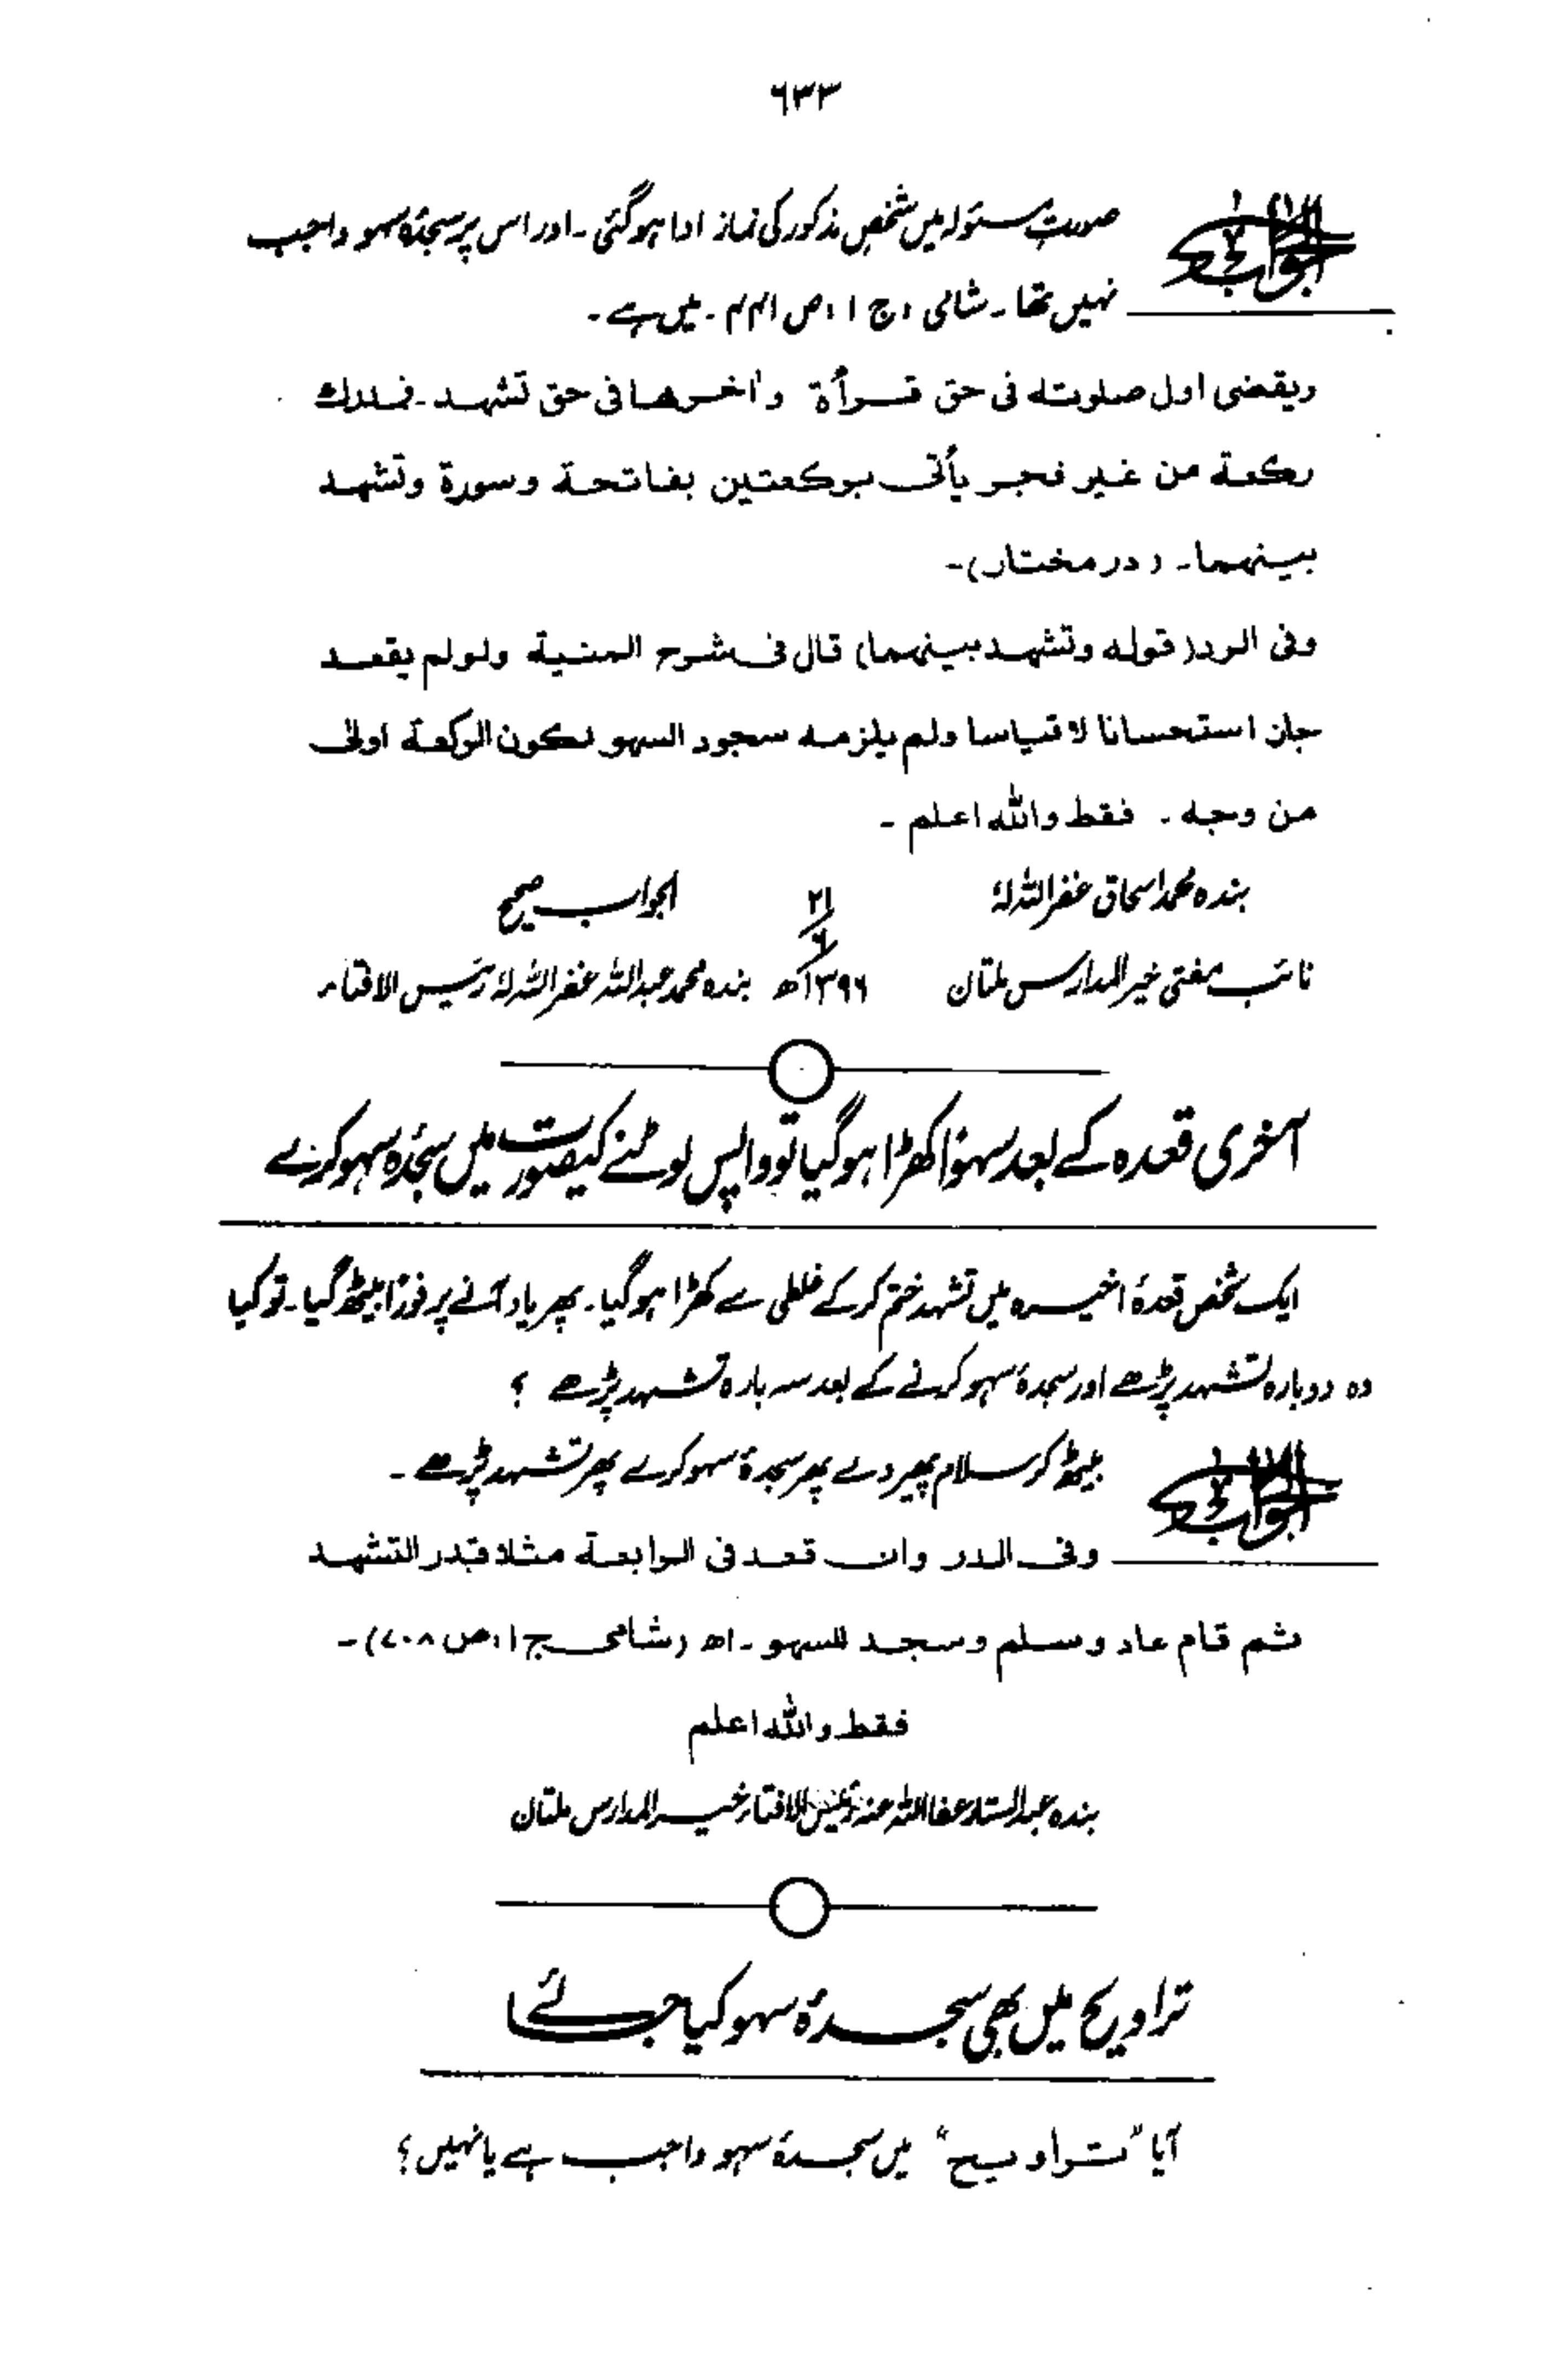 ٦٣٣
الجواب
صورت مسئولہ میں شخصِ مذکور کی نماز ادا ہوگئی ۔ اور اس پر سجدۂ سہو واجب
نہیں تھا ۔ شامی ، ج ۱ ، ص ۴۴۱ ۔ میں ہے ۔
ویقضی اول صلوتہ فی حق قرأة وآخرھا فی حق تشھد ۔ فمدرك
رکعة من غیر فجر یأتی برکعتین بفاتحة وسورة وتشھد
بینھما ۔ (در مختار) ۔
وفی الرد (قوله وتشھد بینھما) قال فی شرح المنیة ولو لم یقعد
جاز استحسانا لا قیاسا ولم یلزمه سجود السھو لکون الرکعة اولی
من وجه ۔ فقط واللہ اعلم ۔
بندہ محمد اسحاق غفر اللہ لہٗ ۲۱ الجواب صحیح
۶
نائب مفتی خیر المدارس ملتان ۱۳۹۶ھ بندہ محمد عبداللہ غفر اللہ لہٗ رئیس الافتاء
آخری قعدہ کے بعد سہوًا کھڑا ہوگیا تو واپس لوٹنے کیصورت میں سجدۂ سہو کرے
ایک شخص قعدۂ اخیرہ میں تشہد ختم کرکے غلطی سے کھڑا ہوگیا ۔ پھر یاد آنے پر فورًا بیٹھ گیا ۔ تو کیا
وہ دوبارہ تشہد پڑھے اور سجدۂ سہو کرنے کے بعد سہ بارہ تشہد پڑھے ؟
الجواب
بیٹھ کر سلام پھیر دے پھر سجدۂ سہو کرے پھر تشہد پڑھے ۔
وفی الدر وان قعد فی الرابعة مثلا قدر التشھد
ثم قام عاد وسلم وسجد للسھو ۔ اھ (شامی ج ۱ ، ص ۷۰۸) ۔
فقط واللہ اعلم
بندہ عبدالستار عفا اللہ عنہ رئیس الافتاء خیر المدارس ملتان
تراویح میں بھی سجدۂ سہو کیا جائے
آیا "تراویح" میں سجدۂ سہو واجب ہے یا نہیں ؟